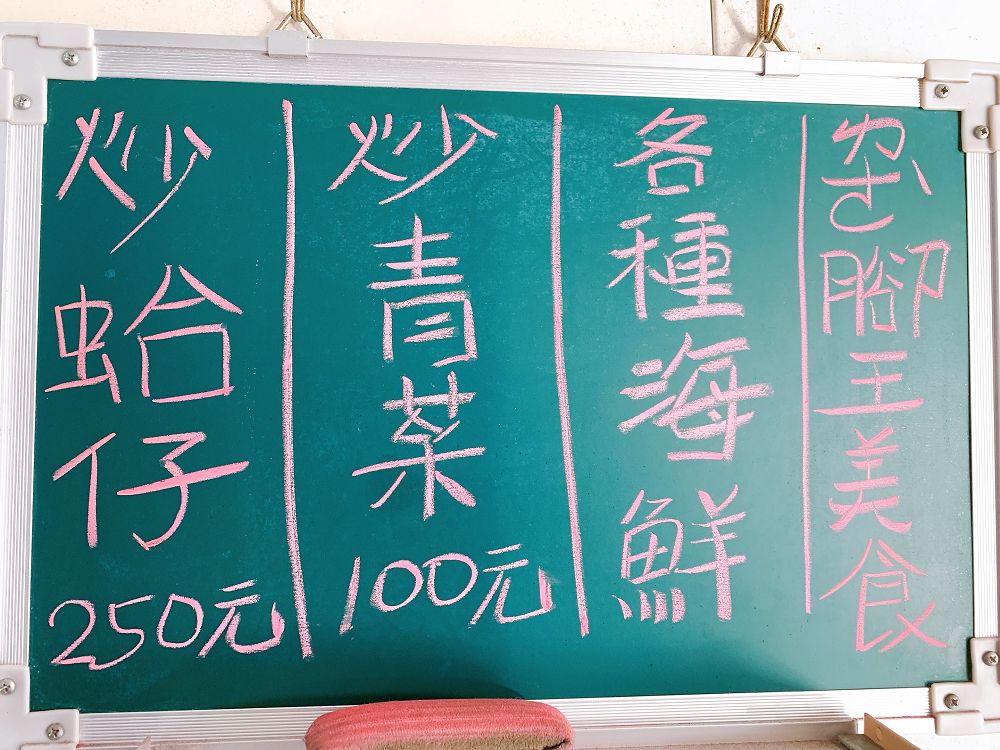 腳王美食
各種海鮮
炒青菜 100元
炒蛤仔 250元